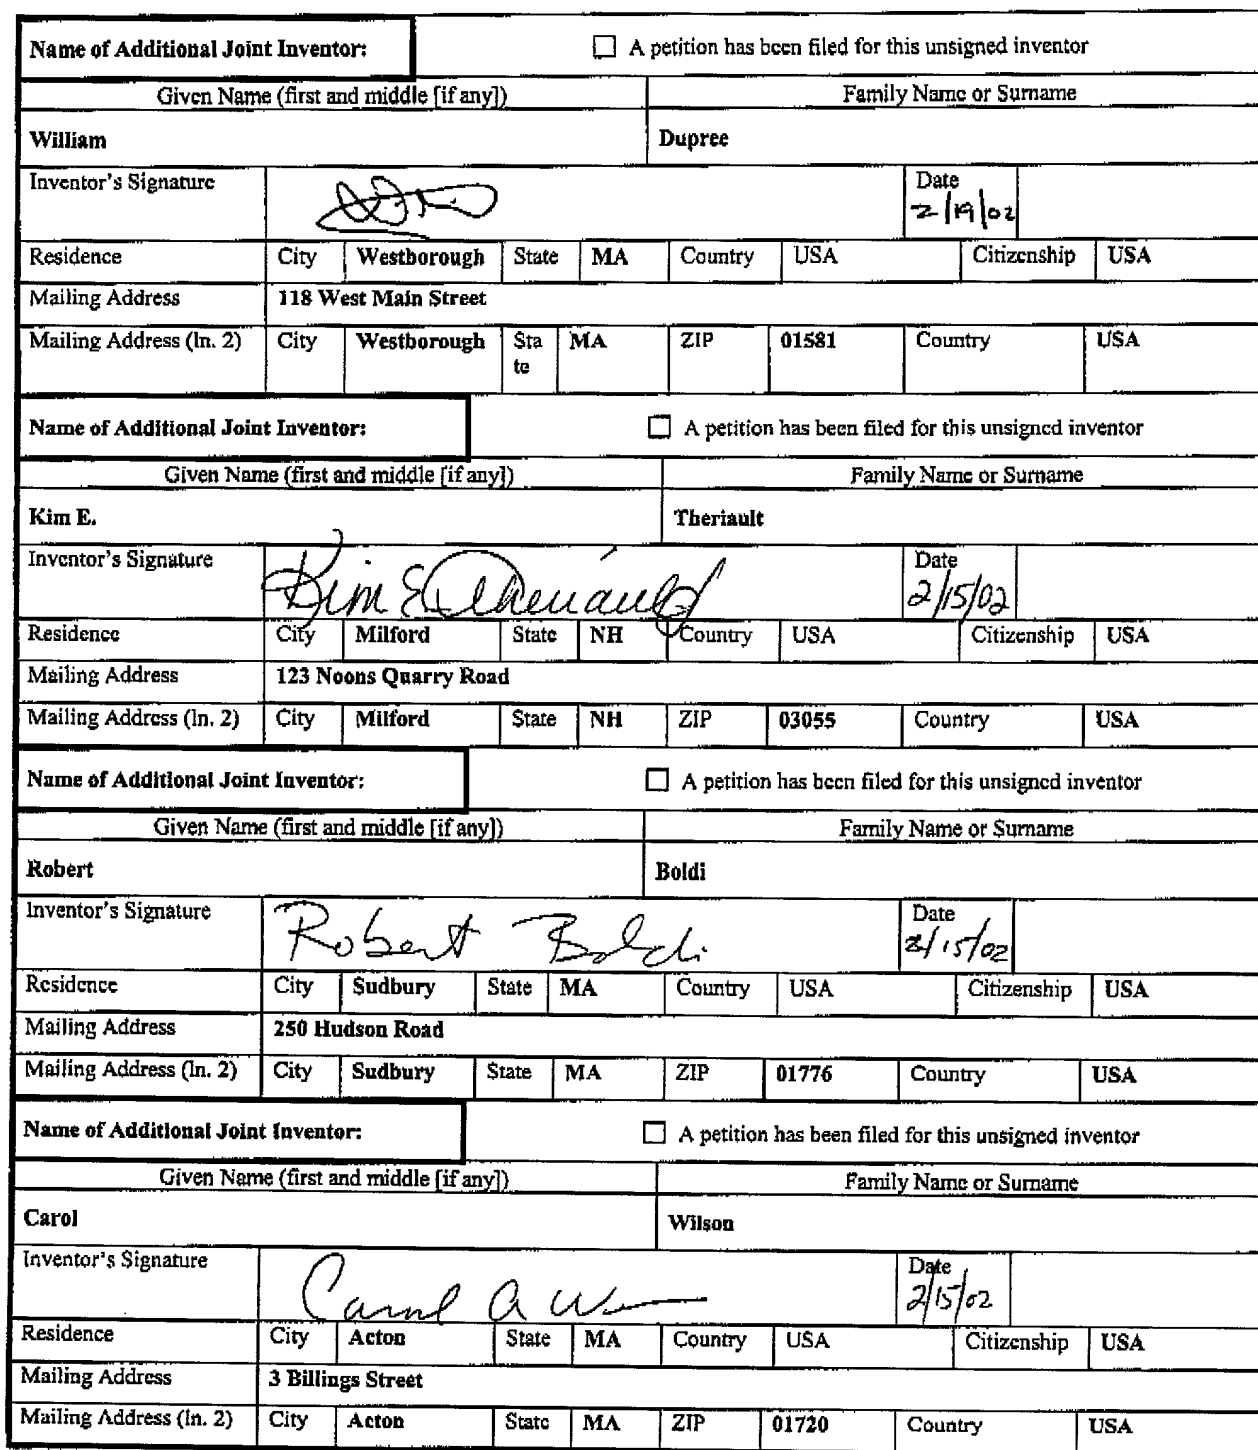 Name of Additional Joint Inventor: A petition has been filed for this unsigned inventor
Given Name (first and middle [if any]) Family Name or Surname
William Dupree
Inventor's Signature Date
2/19/02
Residence City Westborough State MA Country USA Citizenship USA
Mailing Address 118 West Main Street
Mailing Address (ln. 2) City Westborough State MA ZIP 01581 Country USA
Name of Additional Joint Inventor: A petition has been filed for this unsigned inventor
Given Name (first and middle [if any]) Family Name or Surname
Kim E. Theriault
Inventor's Signature Kim E Theriault Date
2/15/02
Residence City Milford State NH Country USA Citizenship USA
Mailing Address 123 Noons Quarry Road
Mailing Address (ln. 2) City Milford State NH ZIP 03055 Country USA
Name of Additional Joint Inventor: A petition has been filed for this unsigned inventor
Given Name (first and middle [if any]) Family Name or Surname
Robert Boldi
Inventor's Signature Robert Boldi Date
2/15/02
Residence City Sudbury State MA Country USA Citizenship USA
Mailing Address 250 Hudson Road
Mailing Address (ln. 2) City Sudbury State MA ZIP 01776 Country USA
Name of Additional Joint Inventor: A petition has been filed for this unsigned inventor
Given Name (first and middle [if any]) Family Name or Surname
Carol Wilson
Inventor's Signature Carol A W Date
2/15/02
Residence City Acton State MA Country USA Citizenship USA
Mailing Address 3 Billings Street
Mailing Address (ln. 2) City Acton State MA ZIP 01720 Country USA